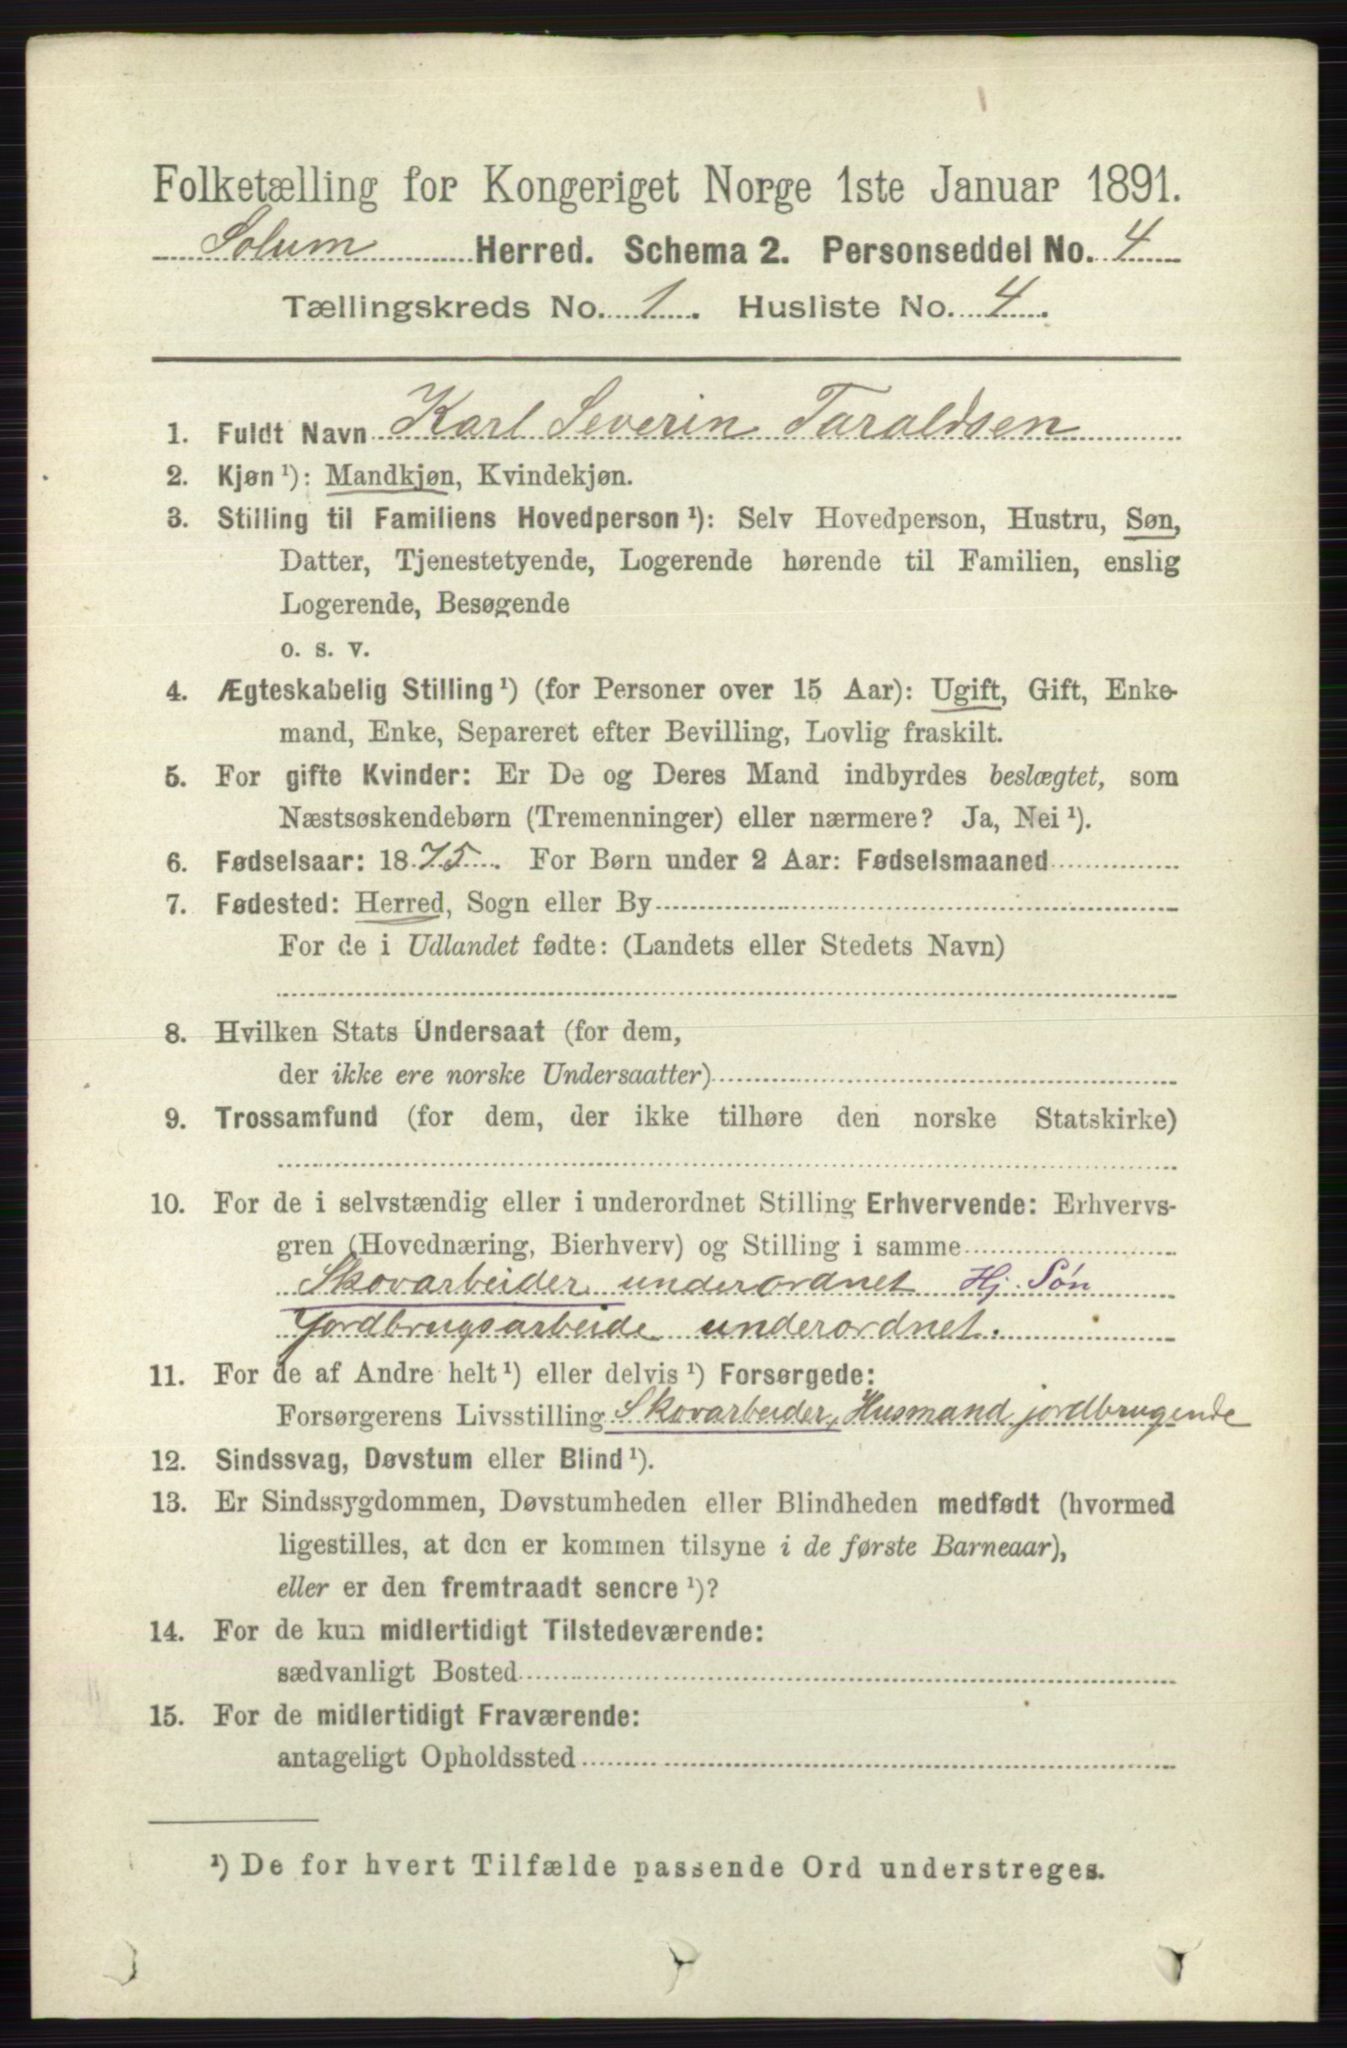 Folketælling for Kongeriget Norge 1ste Januar 1891.
Solum Herred. Schema 2. Personseddel No. 4
Tællingskreds No. 1. Husliste No. 4.
1. Fuldt Navn Karl Severin Taraldsen
2. Kjøn ¹): Mandkjøn, Kvindekjøn.
3. Stilling til Familiens Hovedperson ¹): Selv Hovedperson, Hustru, Søn,
Datter, Tjenestetyende, Logerende hørende til Familien, enslig
Logerende, Besøgende
o. s. v.
4. Ægteskabelig Stilling ¹) (for Personer over 15 Aar): Ugift, Gift, Enke-
mand, Enke, Separeret efter Bevilling, Lovlig fraskilt.
5. For gifte Kvinder: Er De og Deres Mand indbyrdes beslægtet, som
Næstsøskendebørn (Tremenninger) eller nærmere? Ja, Nei ¹).
6. Fødselsaar: 1875. For Børn under 2 Aar: Fødselsmaaned
7. Fødested: Herred, Sogn eller By
For de i Udlandet fødte: (Landets eller Stedets Navn)
8. Hvilken Stats Undersaat (for dem,
der ikke ere norske Undersaatter)
9. Trossamfund (for dem, der ikke tilhøre den norske Statskirke)
10. For de i selvstændig eller i underordnet Stilling Erhvervende: Erhvervs-
gren (Hovednæring, Bierhverv) og Stilling i samme
Skovarbeider underordnet Hj. Søn
Jordbrugsarbeide underordnet.
11. For de af Andre helt ¹) eller delvis ¹) Forsørgede:
Forsørgerens Livsstilling Skovarbeider, Husmand jordbrugende
12. Sindssvag, Døvstum eller Blind ¹).
13. Er Sindssygdommen, Døvstumheden eller Blindheden medfødt (hvormed
ligestilles, at den er kommen tilsyne i de første Barneaar),
eller er den fremtraadt senere ¹)?
14. For de kun midlertidigt Tilstedeværende:
sædvanligt Bosted
15. For de midlertidigt Fraværende:
antageligt Opholdssted
¹) De for hvert Tilfælde passende Ord understreges.